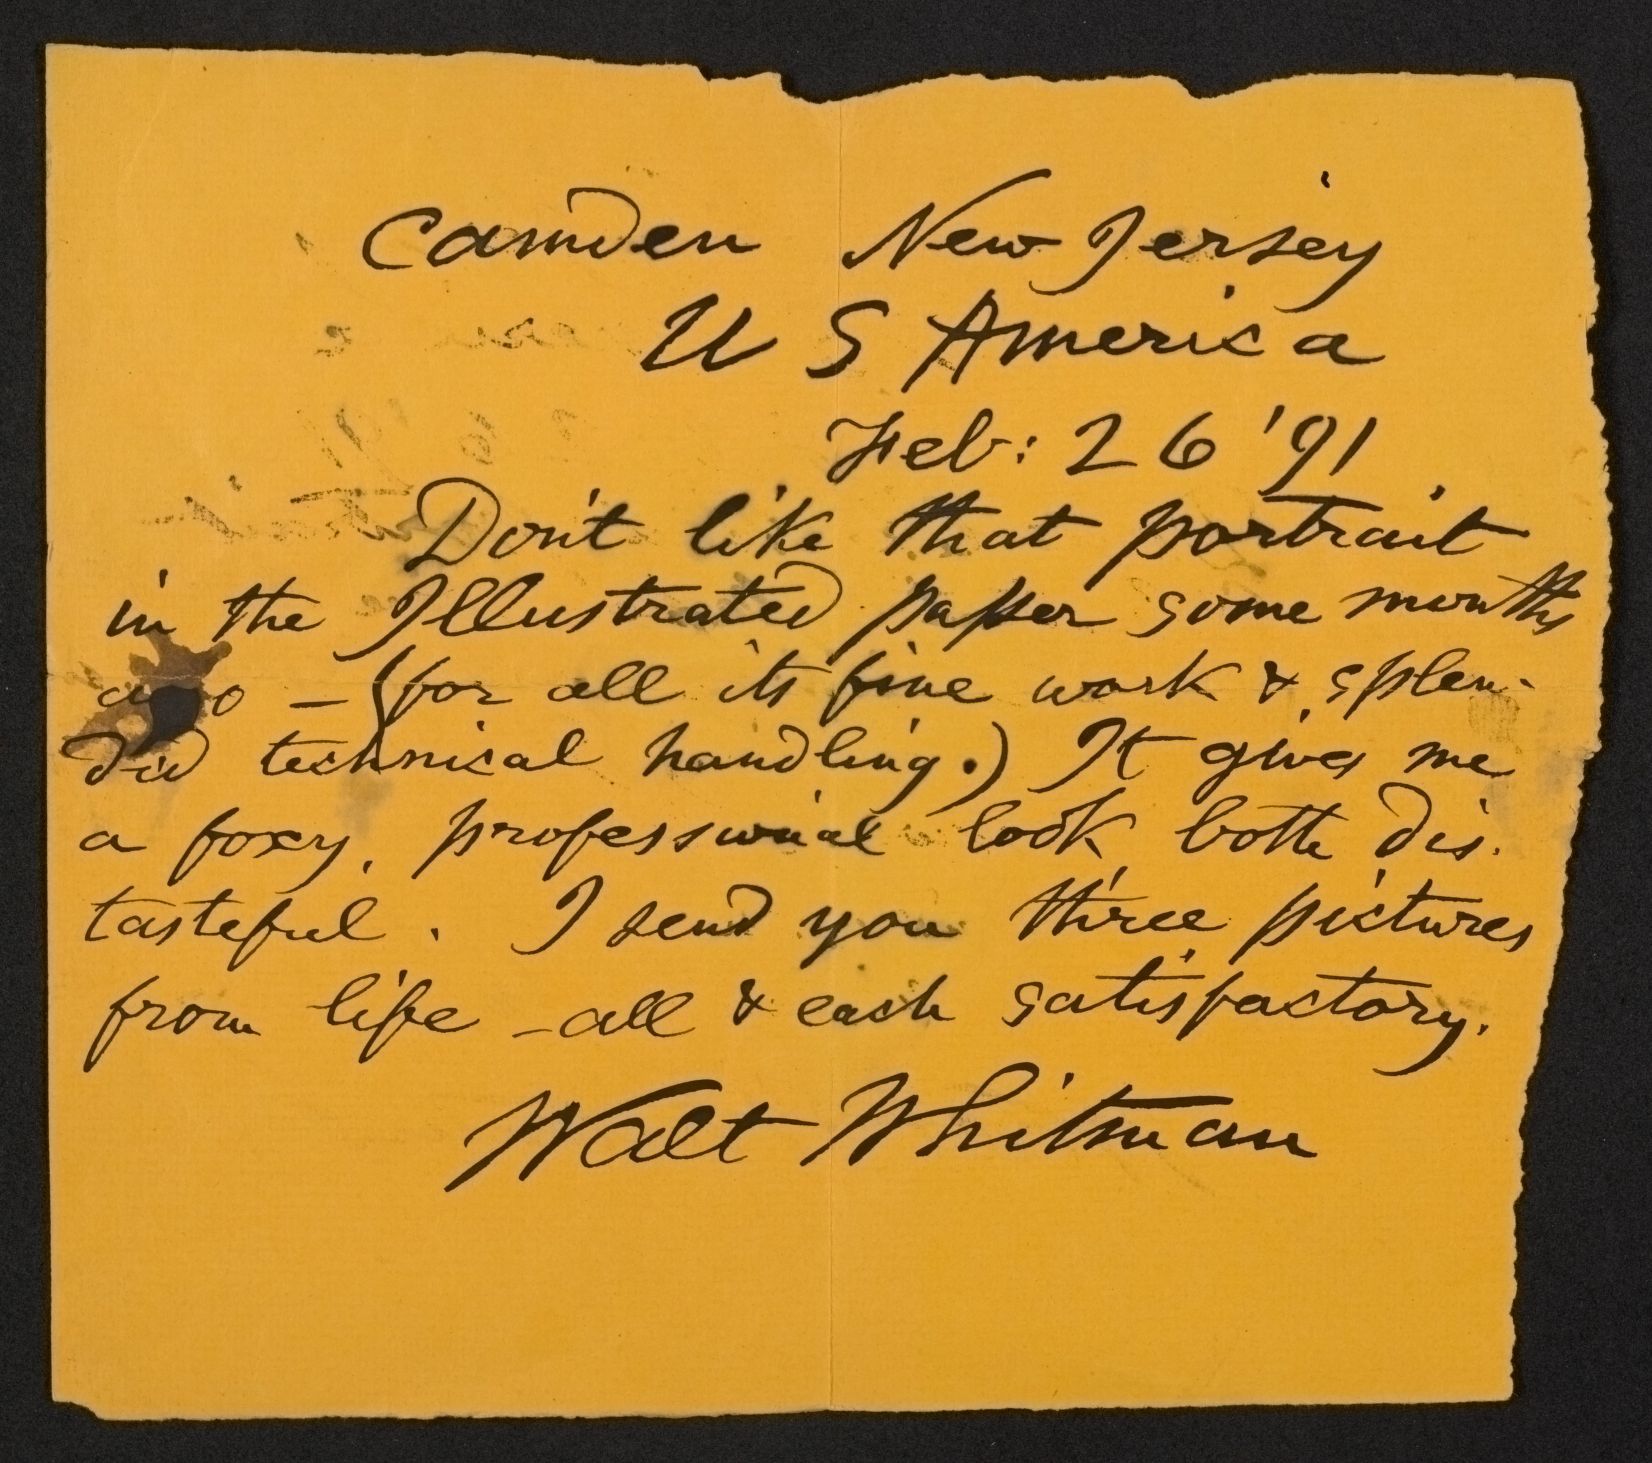 Camden New Jersey
U S America
Feb: 26 '91
Don't like that portrait
in the Illustrated paper some months
ago – (for all its fine work & splen-
did technical handling.) It gives me
a foxy, professional look, both dis-
tasteful. I send you three pictures
from life – all & each satisfactory.
Walt Whitman